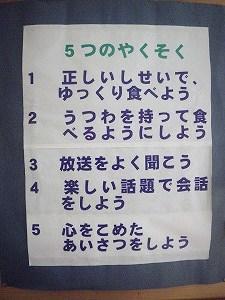 ５つのやくそく
1 正しいしせいで、
ゆっくり食べよう
2 うつわを持って食
べるようにしよう
3 放送をよく聞こう
4 楽しい話題で会話
をしよう
5 心をこめた
あいさつをしよう